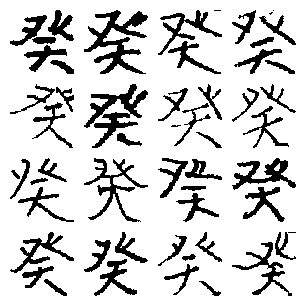 癸癸癸癸
癸癸癸癸
癸癸癸癸
癸癸癸癸